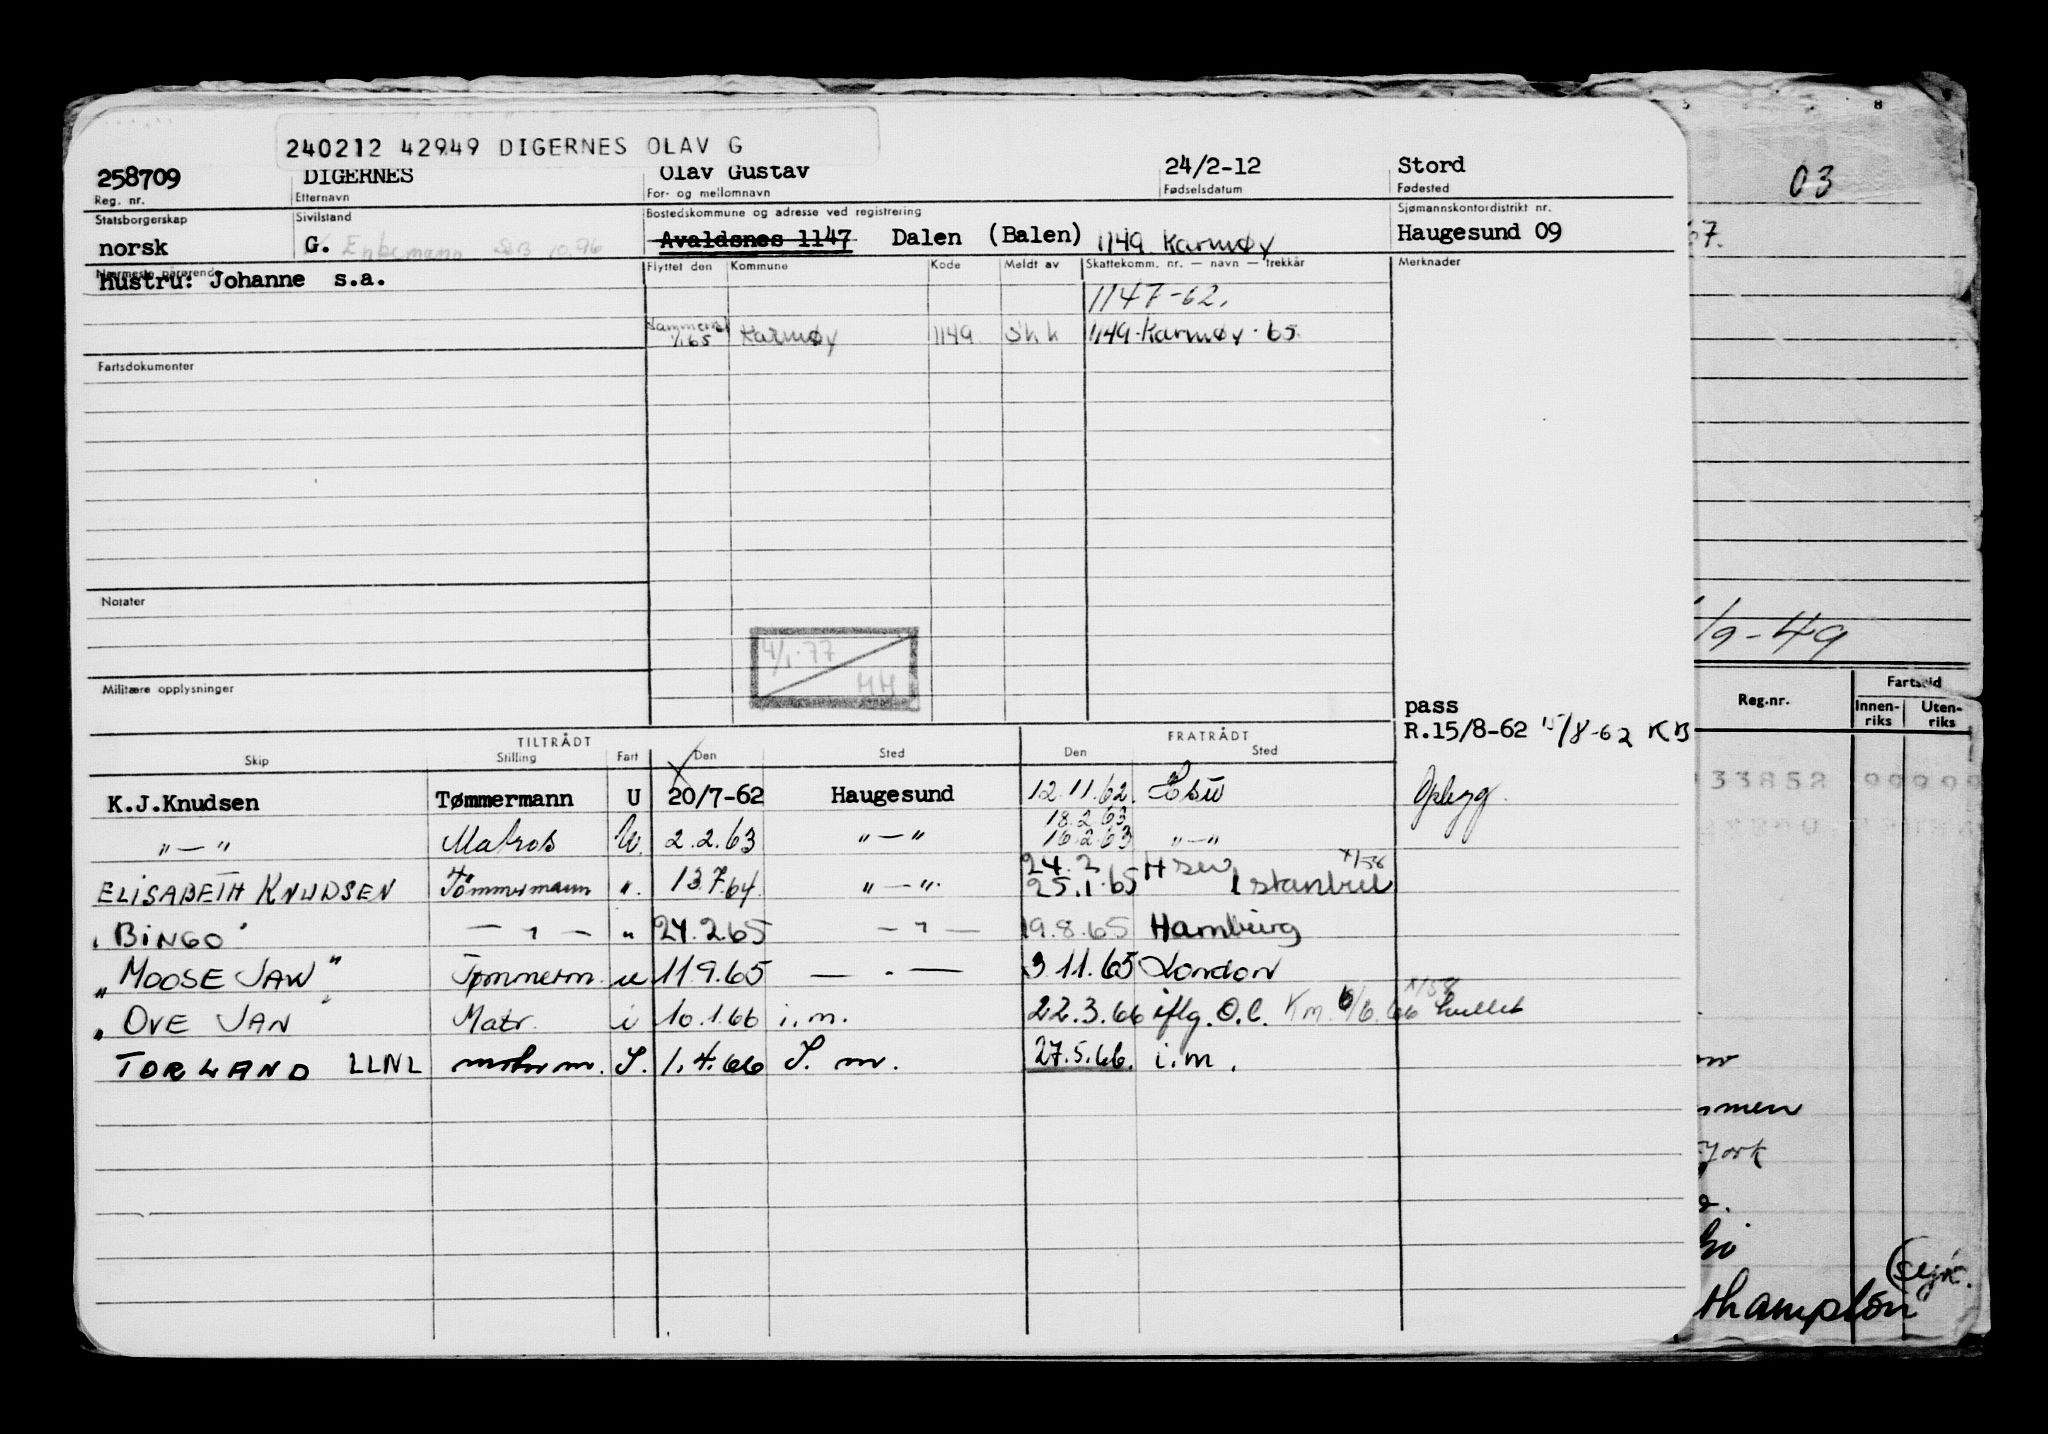 240212 42949 DIGERNES OLAV G
258709 DIGERNES Olav Gustav 24/2-12 Stord
Reg. nr. Etternavn For- og mellomnavn Fødselsdatum Fødested
Statsborgerskap Sivilstand Bostedskommune og adresse ved registrering Sjømannskontordistrikt nr.
norsk G. Enkemann 10.96 Avaldsnes 1147 Dalen (Balen) 1149 Karmøy Haugesund 09
Nærmeste pårørende Flyttet den Kommune Kode Meldt av Skattekomm. nr. — navn — trekkår Merknader
Hustru: Johanne s.a.
1147-62.
1/1 65 Karmøy 1149 Shk 1149 Karmøy 65
Fartsdokumenter
Notater
4/1-77
HH
Militære opplysninger
pass
R.15/8-62 15/8-62 KB
TILTRÅDT FRATRÅDT
Skip Stilling Fart Den Sted Den Sted
K.J.Knudsen Tømmermann U 20/7-62 Haugesund 12.11.62. Hsu
18.2.63
" — " Matros U. 2.2.63 " — " 16.2.63 " — "
24.2 Hsu x/58
ELISABETH KNUDSEN Tömmermann ". 13.7.64. " — " 25.1.65 Istanbul
"BINGO" — " — " 24.2.65 — " — 19.8.65 Hamburg
"MOOSE JAW" Tømmerm. u 11 9.65 — " — 3.11.65 London
"OVE JAN" Matr. i 10.1.66 i.m. 22.3.66 iflg. O.C. Km. 6/6.66 x/58
TORLAND LLNL S. 1.4.66 S. m. 27.5.66. i.m.
03
67.
/9-49
Reg.nr. Fartstid
Innen-riks Uten-riks
33852
mmen
York
thampton